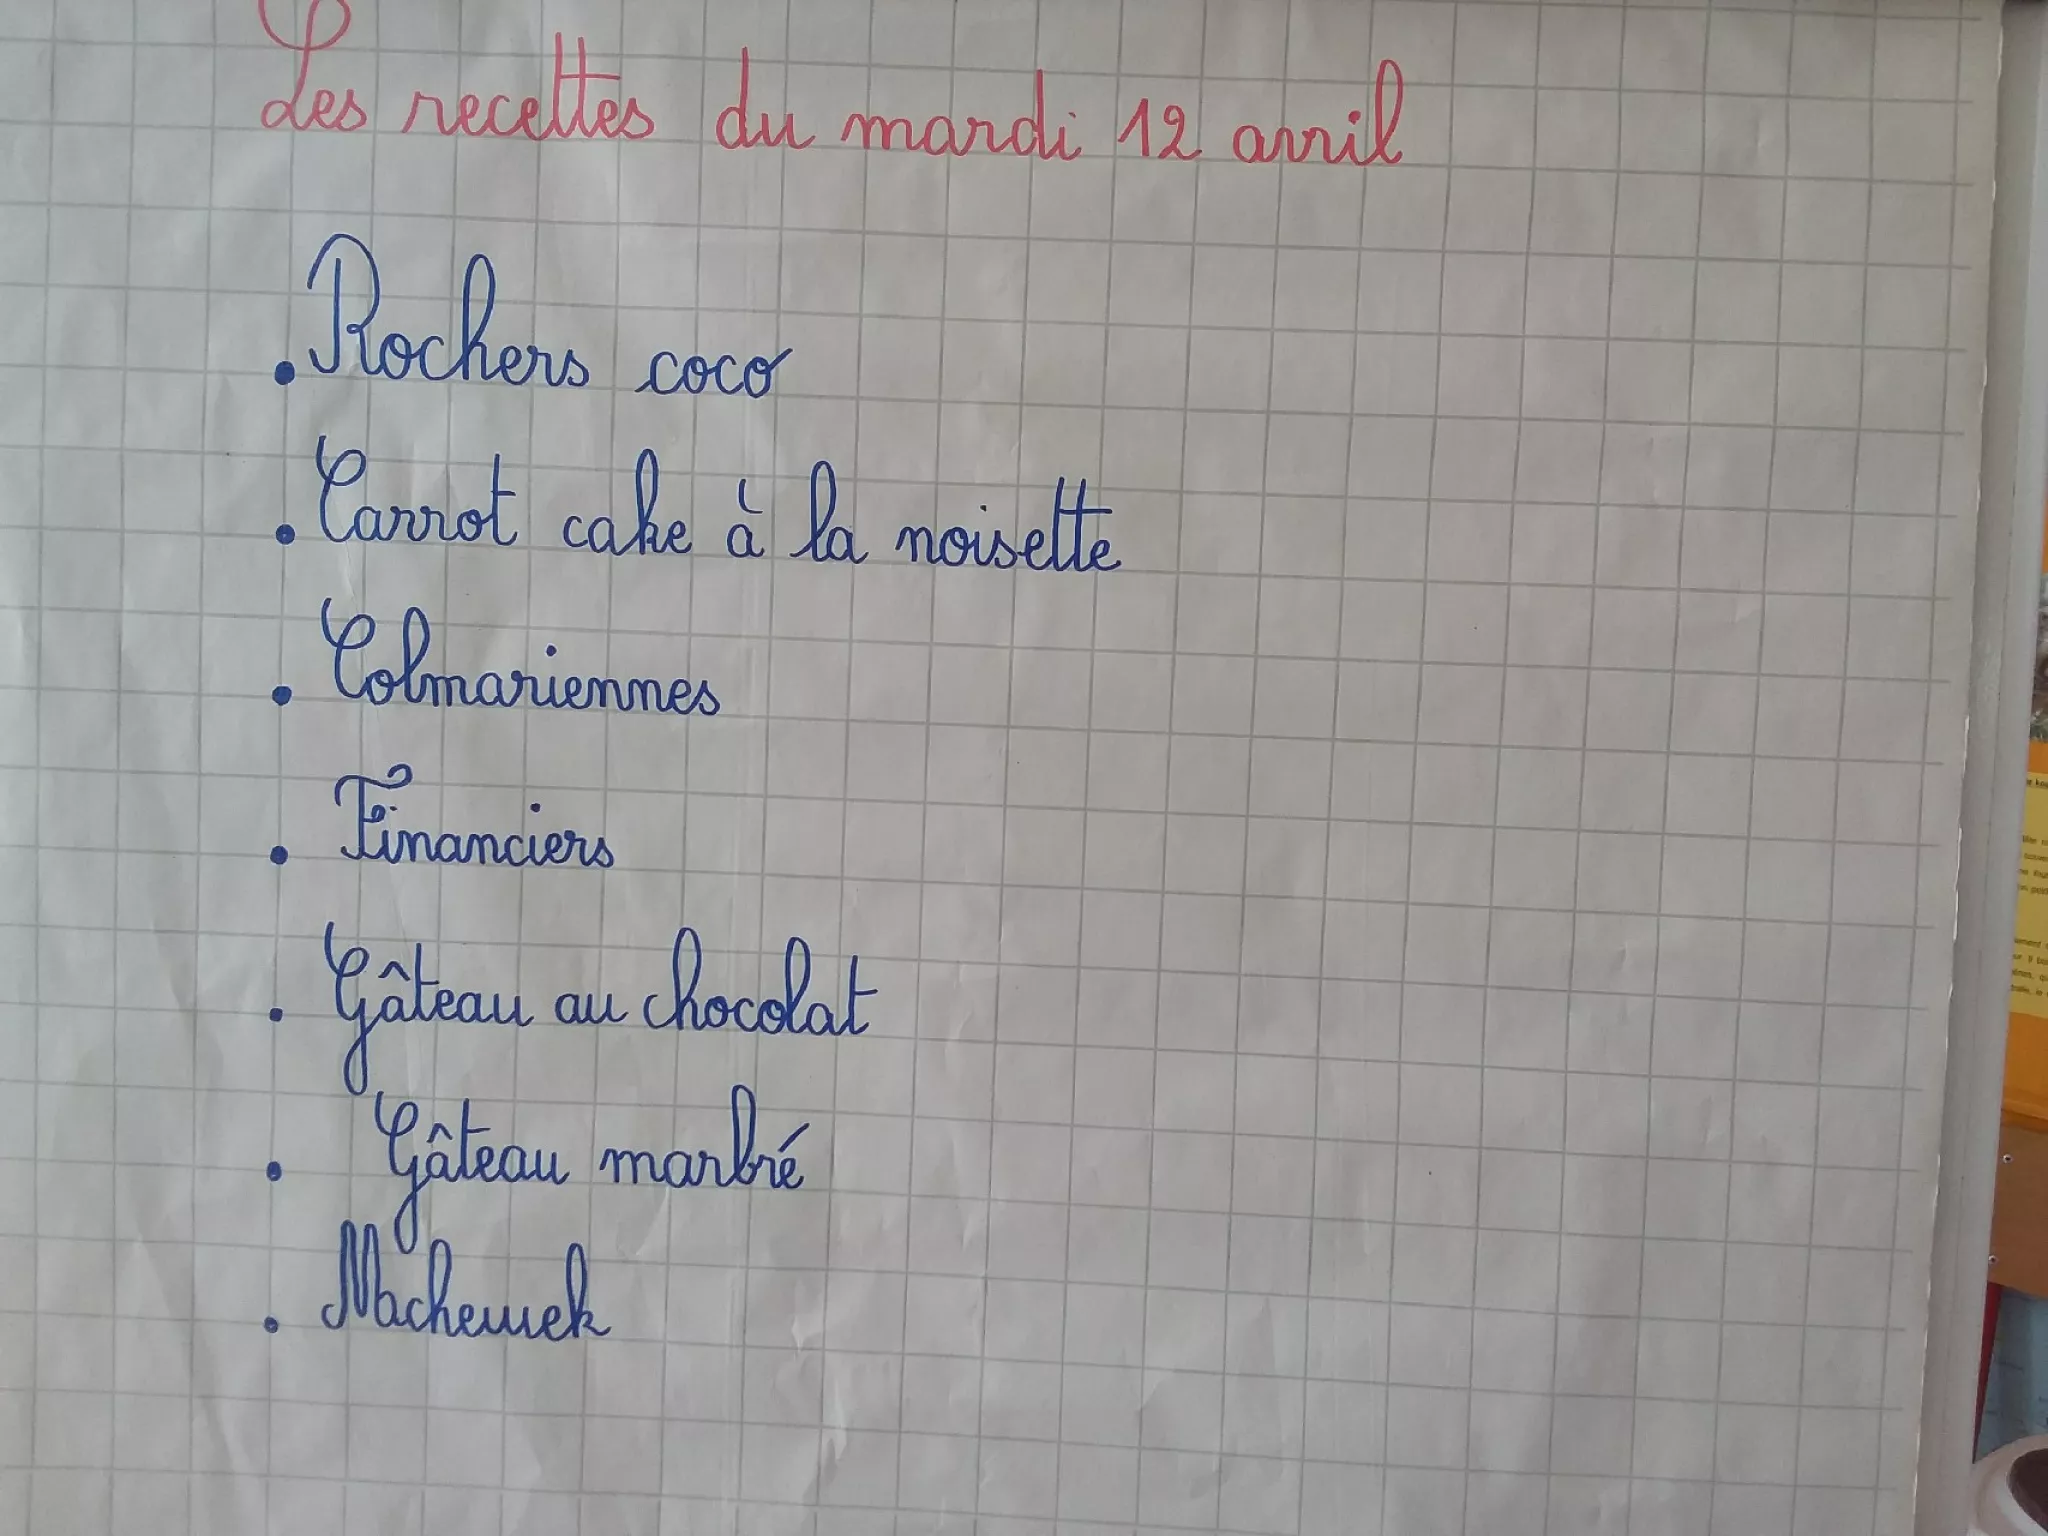 Les recettes du mardi 12 avril
. Rochers coco
. Carrot cake à la noisette
. Colmariennes
. Financiers
. Gâteau au chocolat
. Gâteau marbré
. Machewek